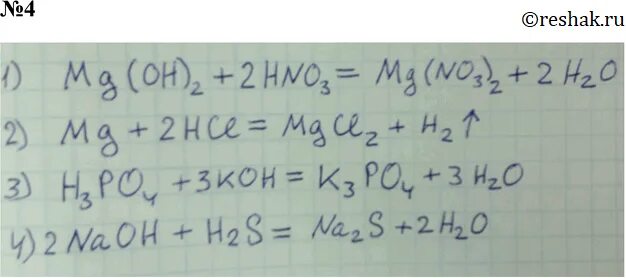 №4
©reshak.ru
1) Mg(OH)₂ + 2HNO₃ = Mg(NO₃)₂ + 2H₂O
2) Mg + 2HCl = MgCl₂ + H₂↑
3) H₃PO₄ + 3KOH = K₃PO₄ + 3H₂O
4) 2NaOH + H2S = Na₂S + 2H₂O